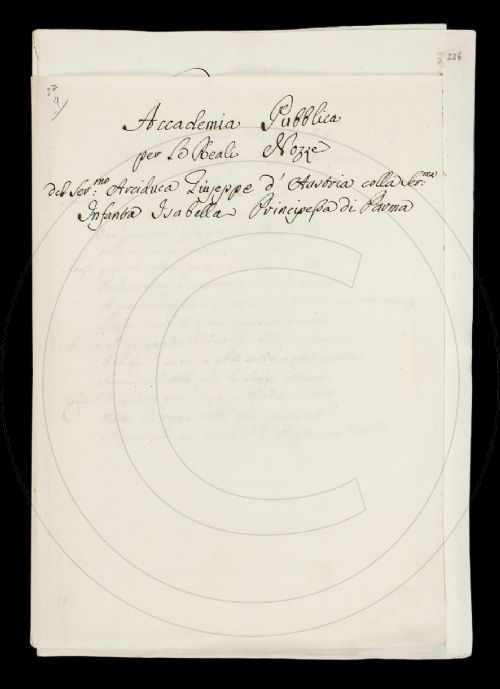 27
9
226
Accademia Pubblica
per Le Reali Nozze
del Ser:mo Arciduca Giuseppe d'Austria colla Ser:ma
Infanta Isabella Principessa di Parma